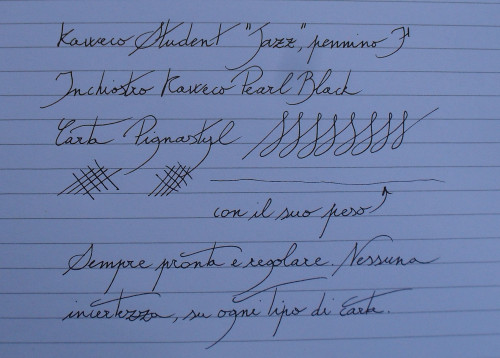 Kaweco Student "Jazz", pennino F
Inchiostro Kaweco Pearl Black
Carta Pignastyl
con il suo peso
Sempre pronta e regolare. Nessuna
incertezza, su ogni tipo di carta.